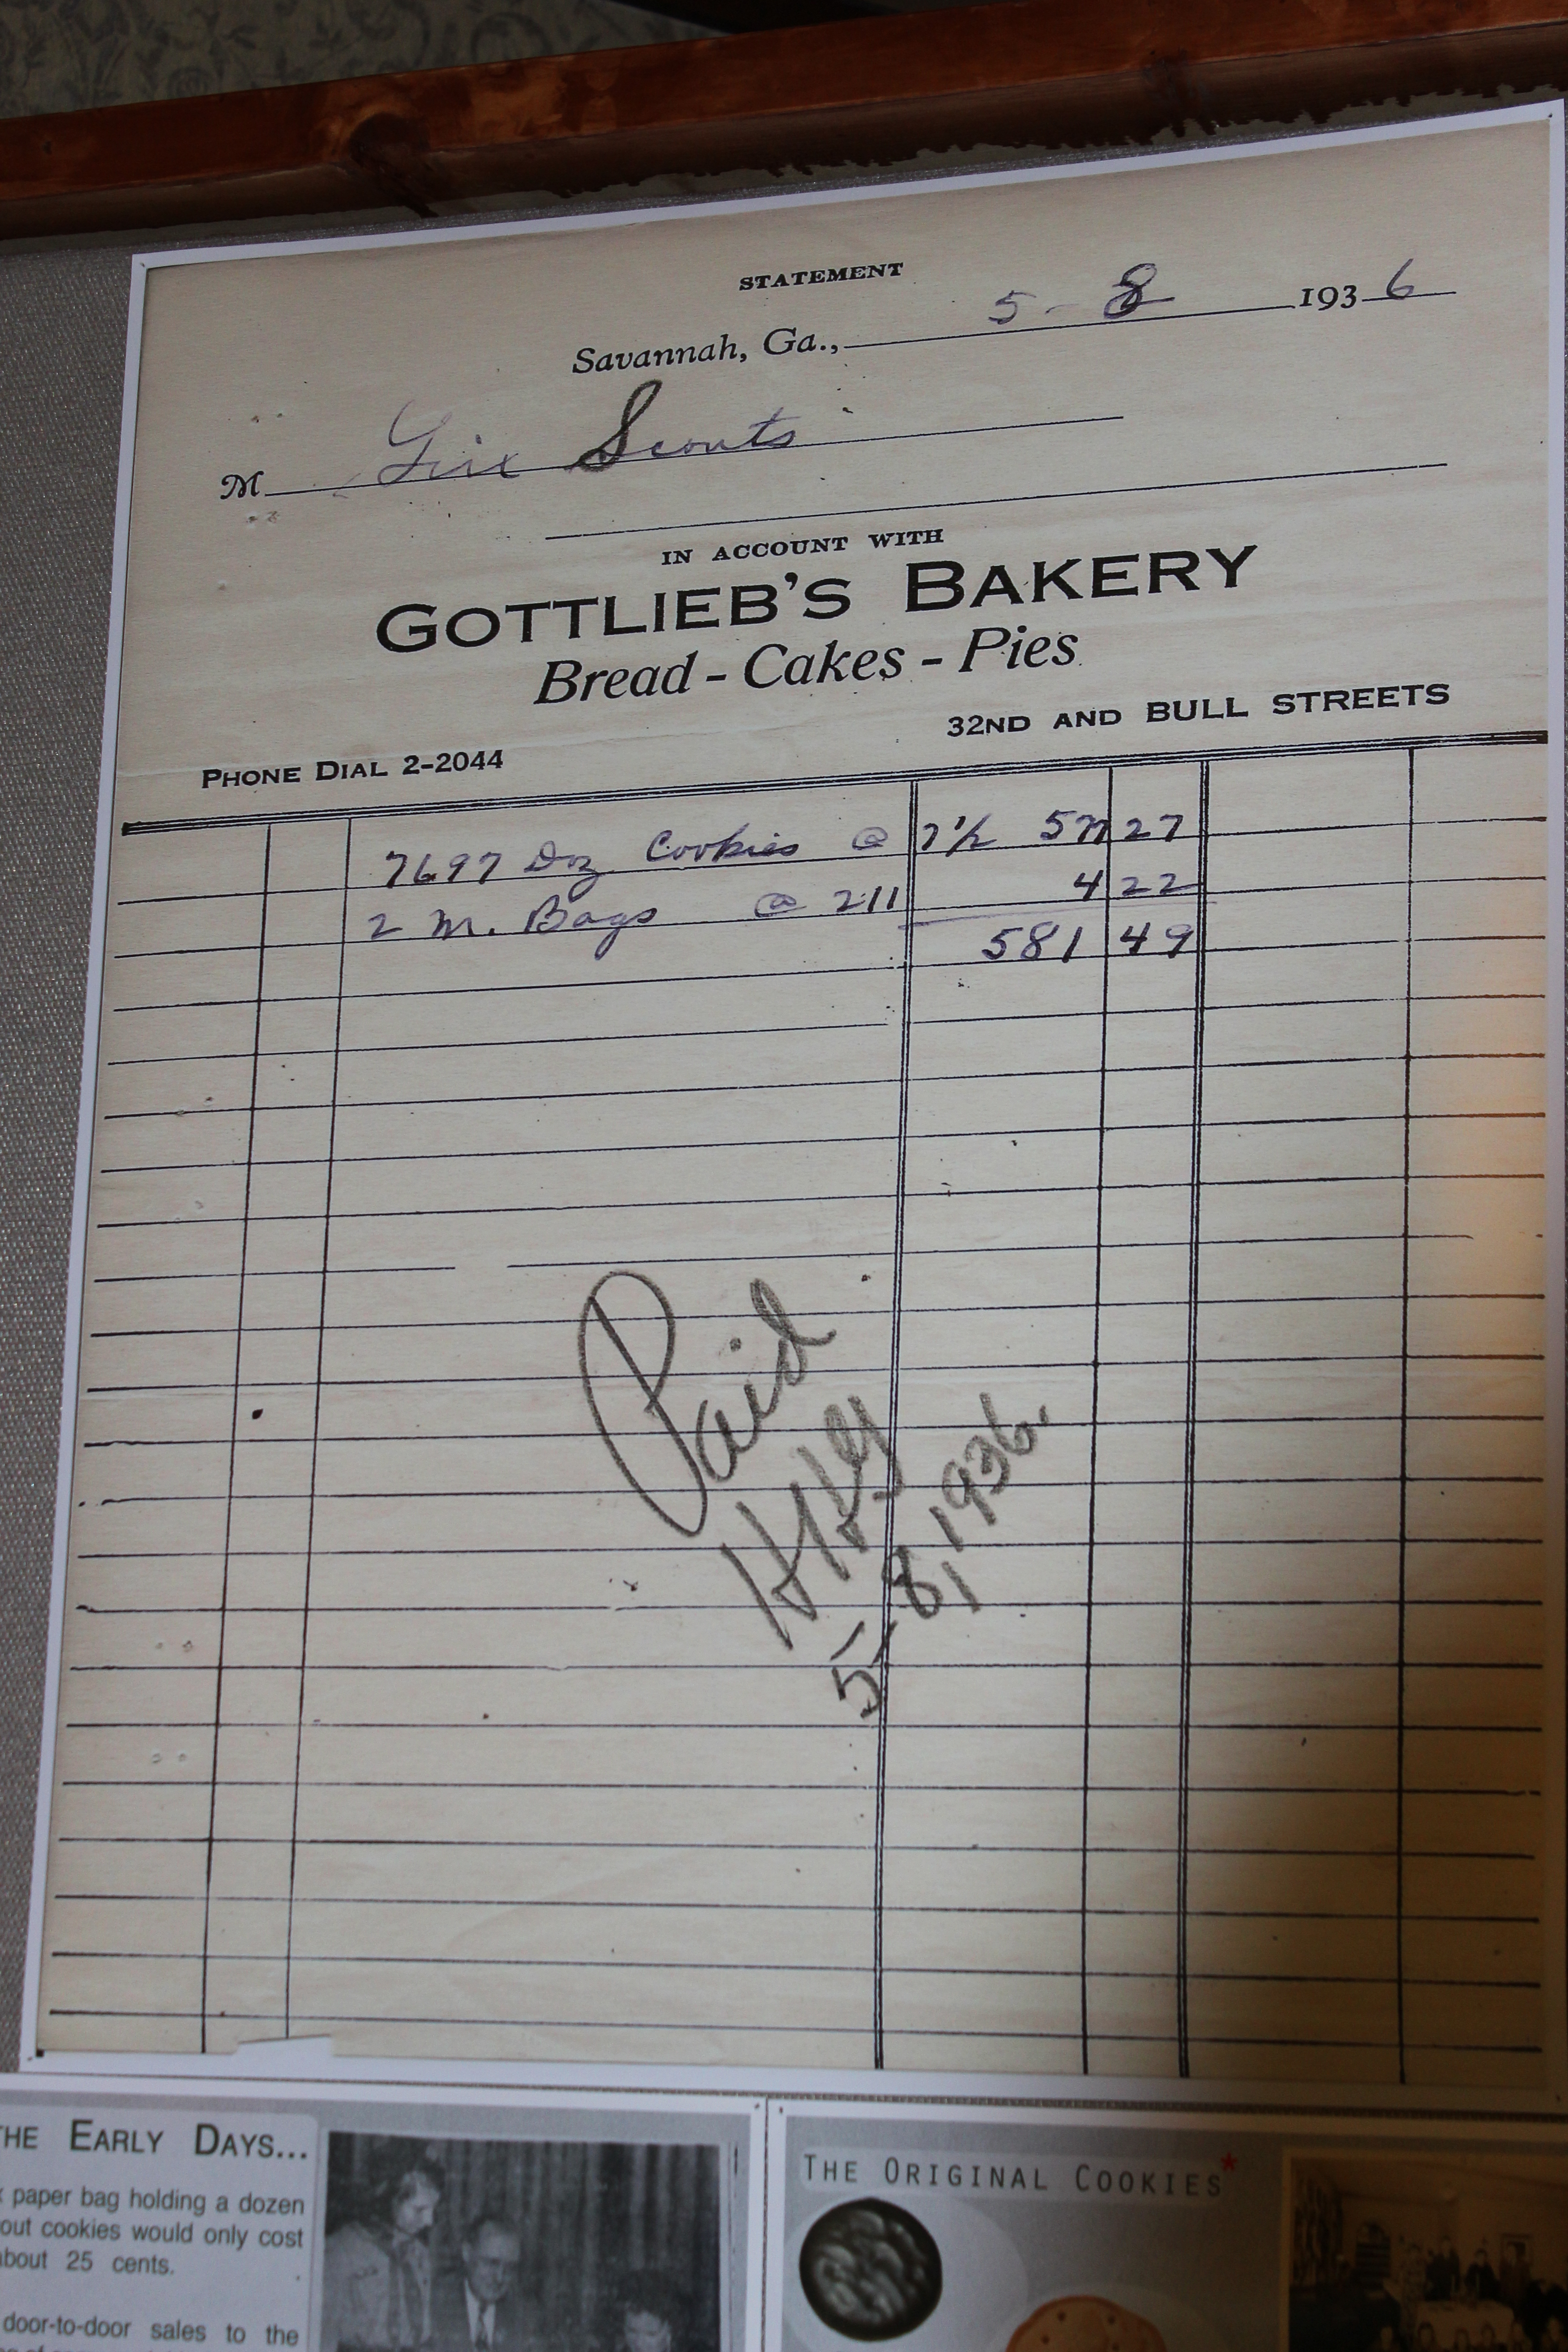 STATEMENT
Savannah, Ga., 5-8 1936
M Girl Scouts
IN ACCOUNT WITH
GOTTLIEB'S BAKERY
Bread - Cakes - Pies
32ND AND BULL STREETS
PHONE DIAL 2-2044
7697 Doz Cookies @ 7½ 577 27
2 M. Bags @ 211 4 22
581 49
Paid
5-8, 1936.
THE EARLY DAYS...
paper bag holding a dozen
out cookies would only cost
about 25 cents.
door-to-door sales to the
THE ORIGINAL COOKIES*